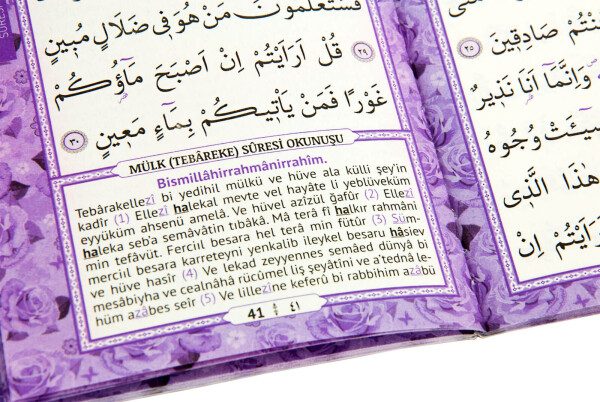 فَسَتَعْلَمُونَ مَنْ هُوَ فِى ضَلَالٍ مُبِينٍ
﴿٢٩﴾ قُلْ اَرَاَيْتُمْ اِنْ اَصْبَحَ مَٓاؤُ۬كُمْ
غَوْرًا فَمَنْ يَاْتِيكُمْ بِمَٓاءٍ مَعِينٍ ﴿٣٠﴾
MÜLK (TEBÂREKE) SÛRESİ OKUNUŞU
Bismillâhirrahmânirrahîm.
Tebârakellezî bi yedihil mülkü ve hüve ala külli şey'in
kadîr (1) Ellezî halekal mevte vel hayâte li yeblüveküm
eyyüküm ahsenü amelâ. Ve hüvel azîzül ğafûr (2) Ellezî
haleka seb'a semâvâtin tıbâkâ. Mâ terâ fî halkır rahmâni
min tefâvüt. Ferciıl besara hel terâ min fütûr (3) Süm-
merciıl besara karreteyni yenkalib ileykel besaru hâsiev
ve hüve hasîr (4) Ve lekad zeyyennes semâed dünyâ bi
mesâbiyha ve cealnâhâ rücûmel liş şeyâtîni ve a'tednâ le-
hüm azâbes seîr (5) Ve lillezîne keferû bi rabbihim azâbü
41 ٤١
كُنْتُمْ صَادِقِينَ
﴿٢٥﴾
وَاِنَّمَٓا اَنَا۬ نَذِيرٌ
سِٓيـَٔتْ وُجُوهُ
هٰذَا الَّذِى
اَرَاَيْتُمْ اِنْ